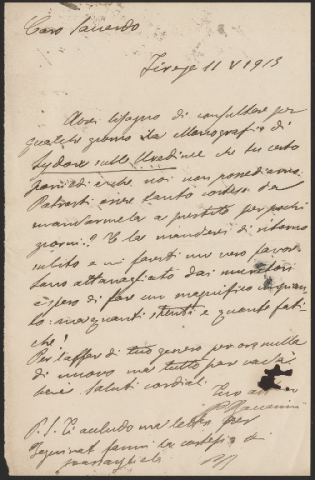 Caro Saccardo
Firenze 11 V 1913
Avrei bisogno di consultare per
qualche giorno la Monografia di
Sydow sulle Uredinee che tu certo
possiedi e che noi non possediamo.
Potresti avere tanta cortesia da
mandarmela a prestito per pochi
giorni? Te la manderei di ritorno
subito e mi faresti un vero favore.
Sono attanagliato dai
e spero di fare un magnifico
to: ma quanti stenti e quante fati-
che!
Per l'affar di tuo genero per ora nulla
di nuovo ma tutto per
bene. Saluti cordiali
Tuo
P. S. Ti accludo una lettera per
fammi la cortesia di